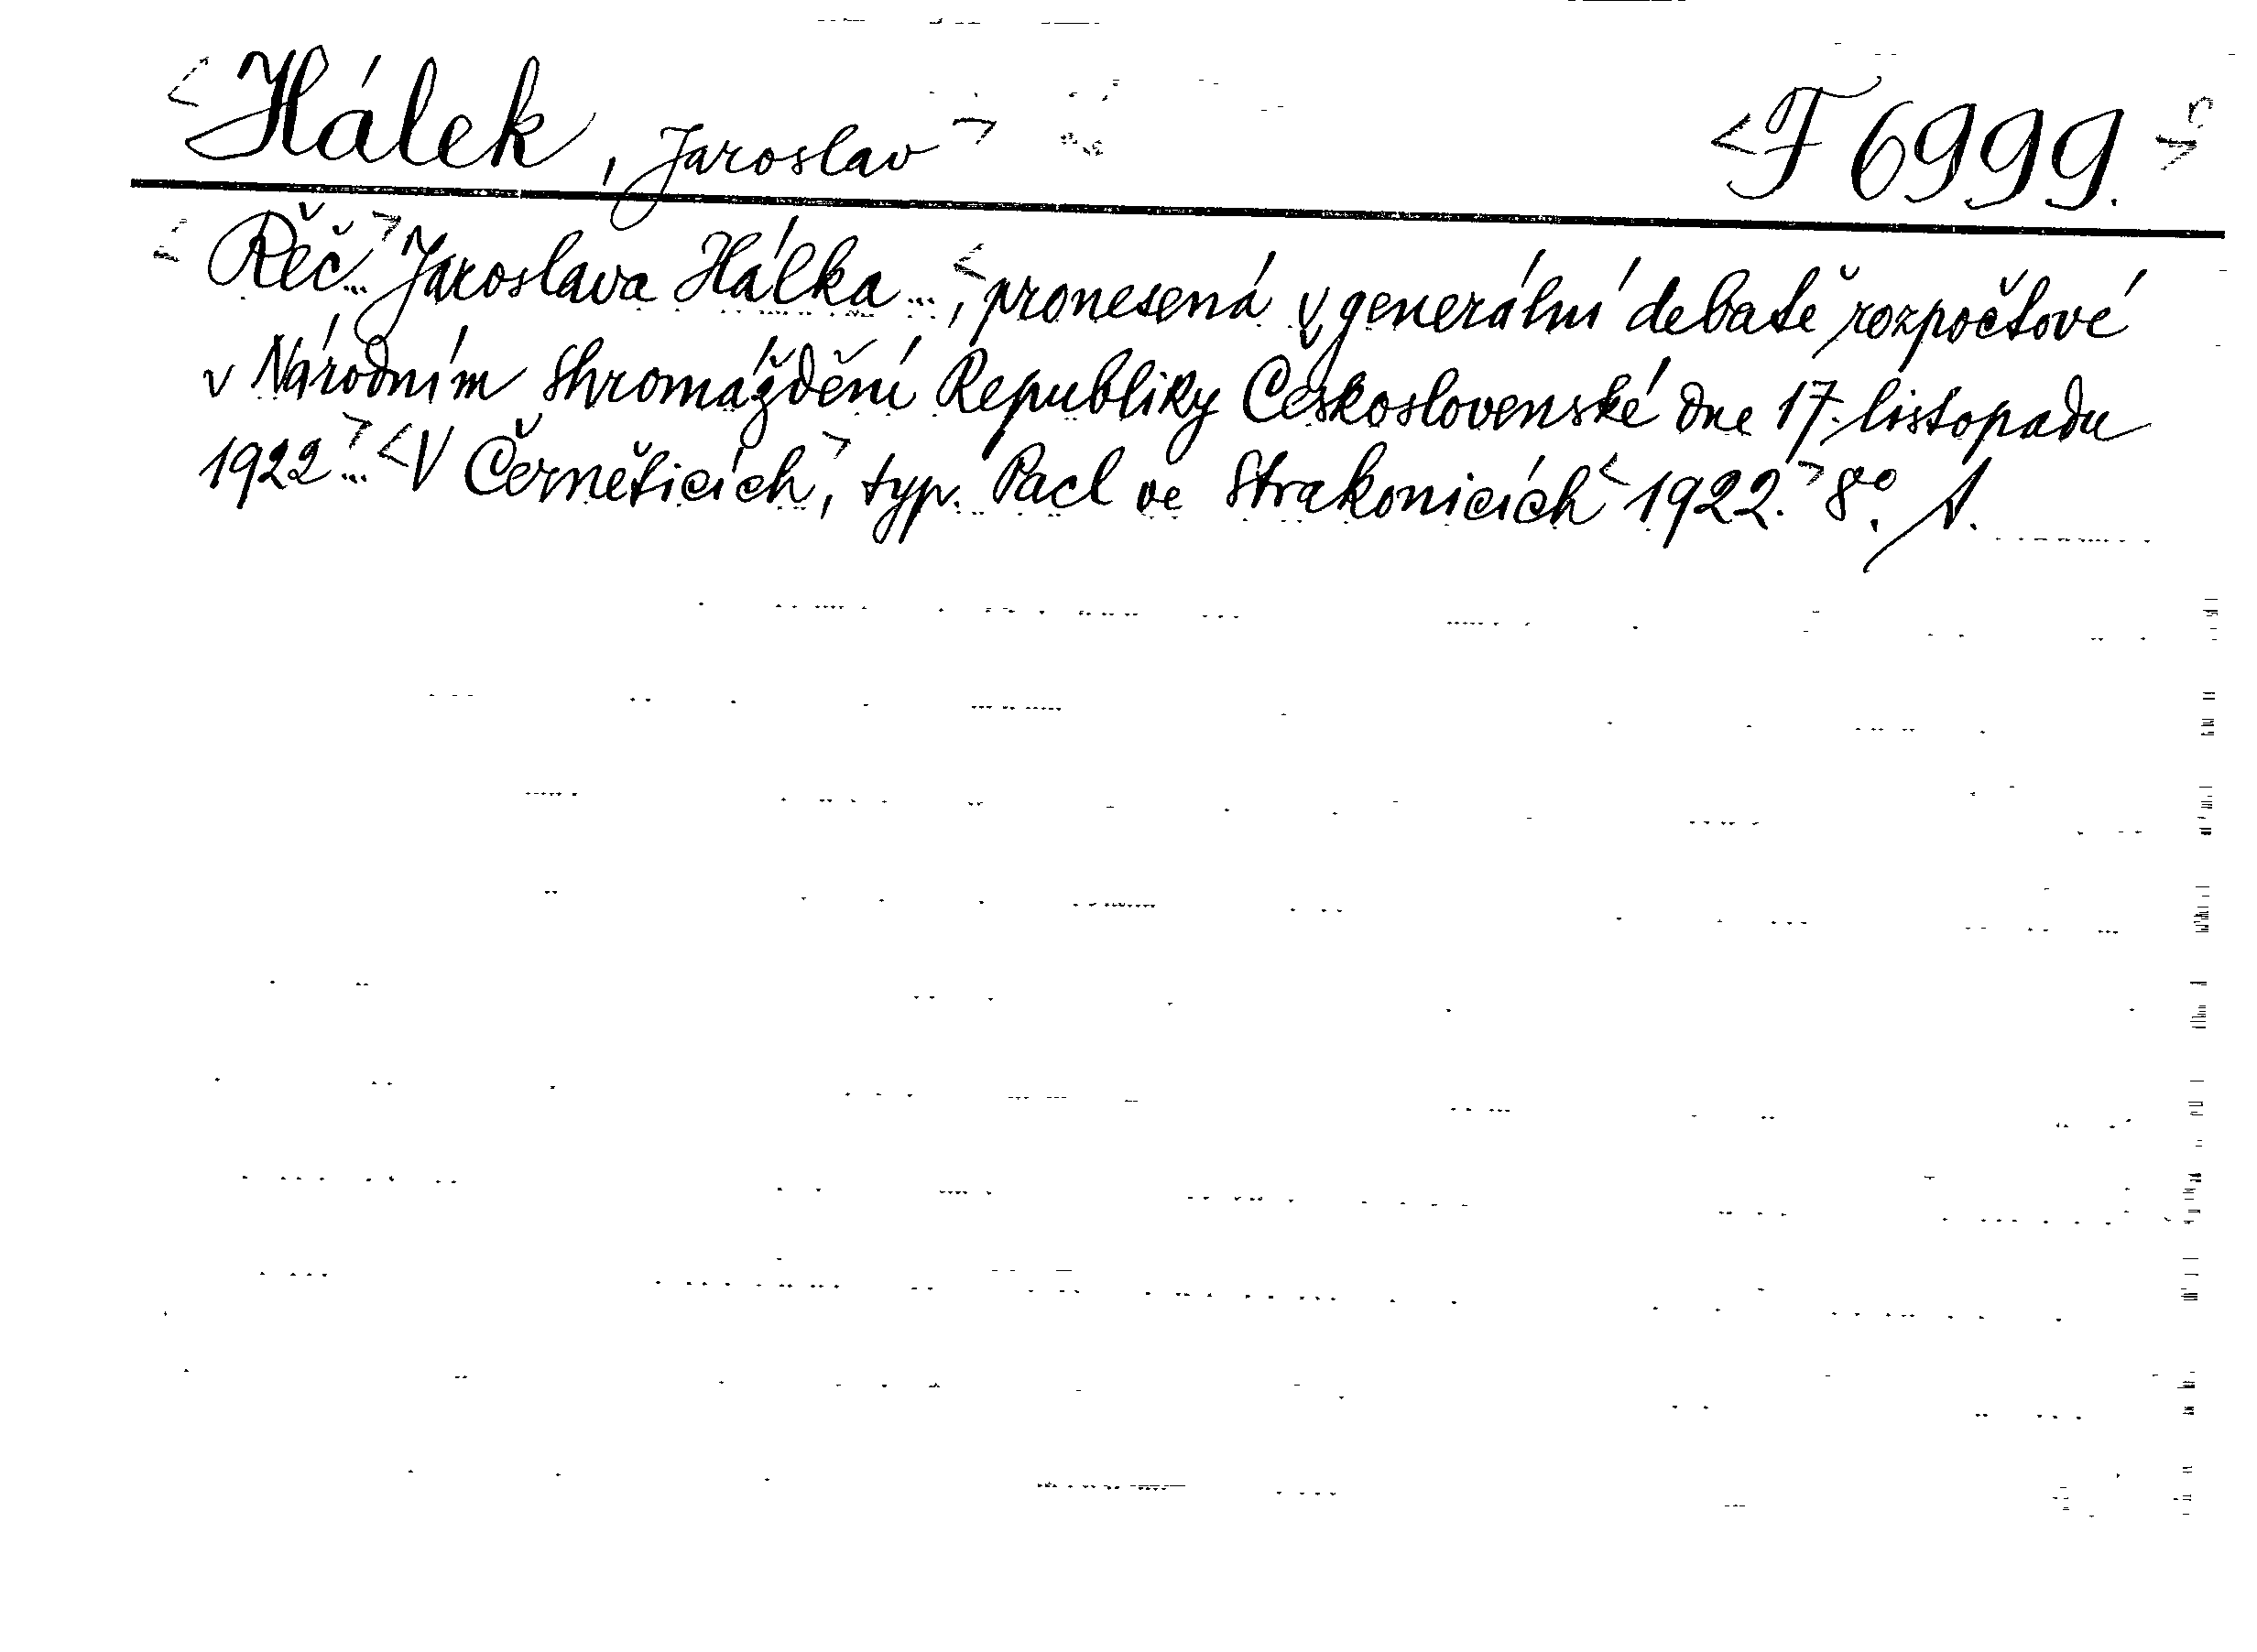 <Hálek, Jaroslav> <F 6999.>
<Řěč...> Jaroslava Hálka..., <pronesená v generální debatě rozpočtové
v Národním shromáždění Republiky Československé dne 17. listopadu
1922...> <V Černěticích>, typ. Pacl ve Strakonicích <1922.> 8°. A.